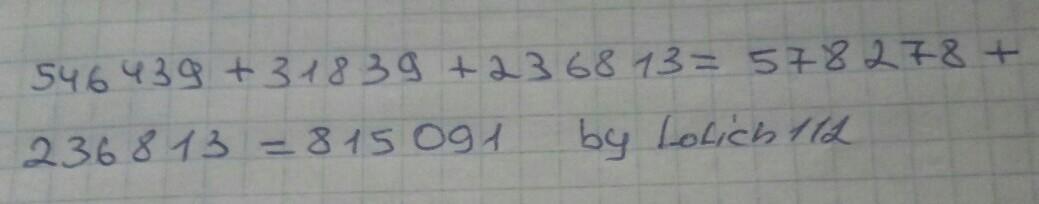 546439 + 31839 + 236813 = 578278 +
236813 = 815091 by Lolich112